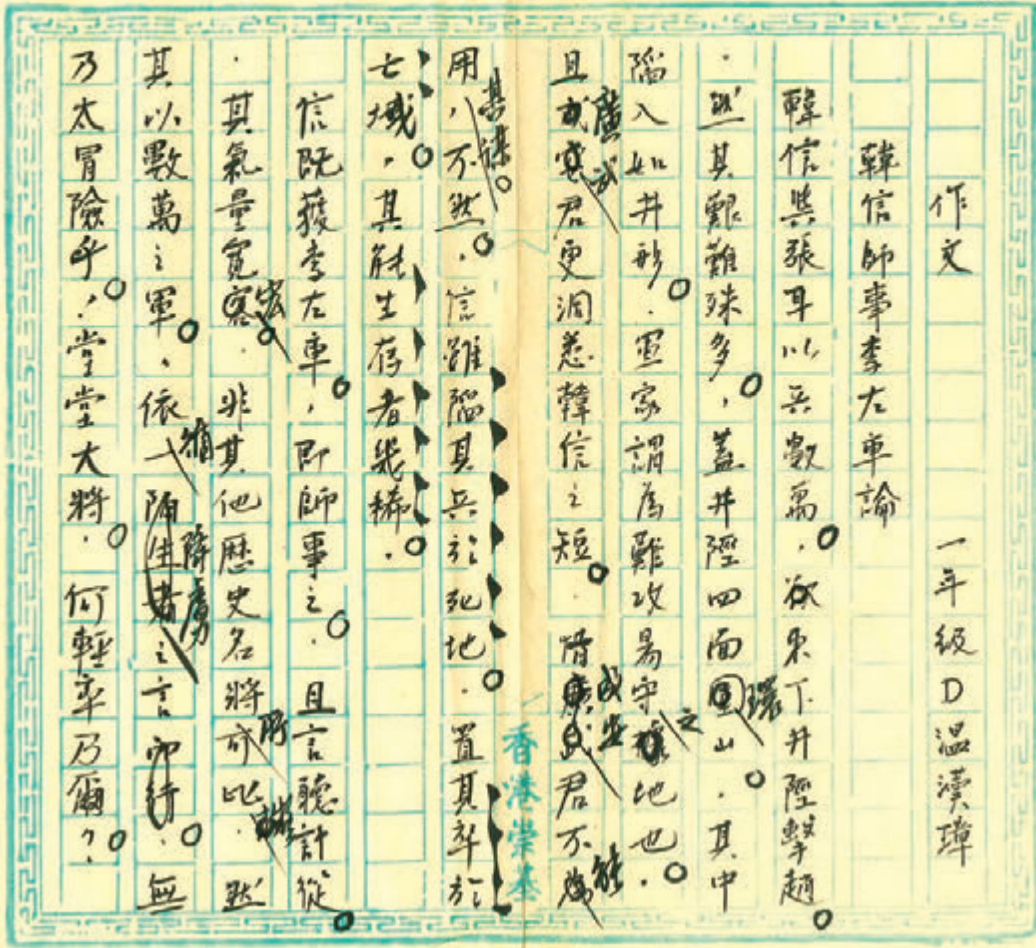 作文 一年級D温瀆璋
韓信師事李左車論
韓信與張耳以兵數萬，欲東下井陘擊趙
，然其艱難殊多，蓋井陘四面圍山，其中
環
陷入如井形，軍家謂為難攻易守之地也，
且成安君更洞悉韓信之短，惜廣武君不為
廣武
成安
能
用八不然，信雖陷其兵於死地，置其卒於
其謀
亡域，其能生存者幾稀，
信既獲李左車，即師事之，且言聽計從
，其氣量寬容，非其他歷史名將可比，然
宏
所
其以數萬之軍，依一陌生者之言即行，無
補
降虜
乃太冒險乎，堂堂大將，何輕率乃爾？
香港崇基